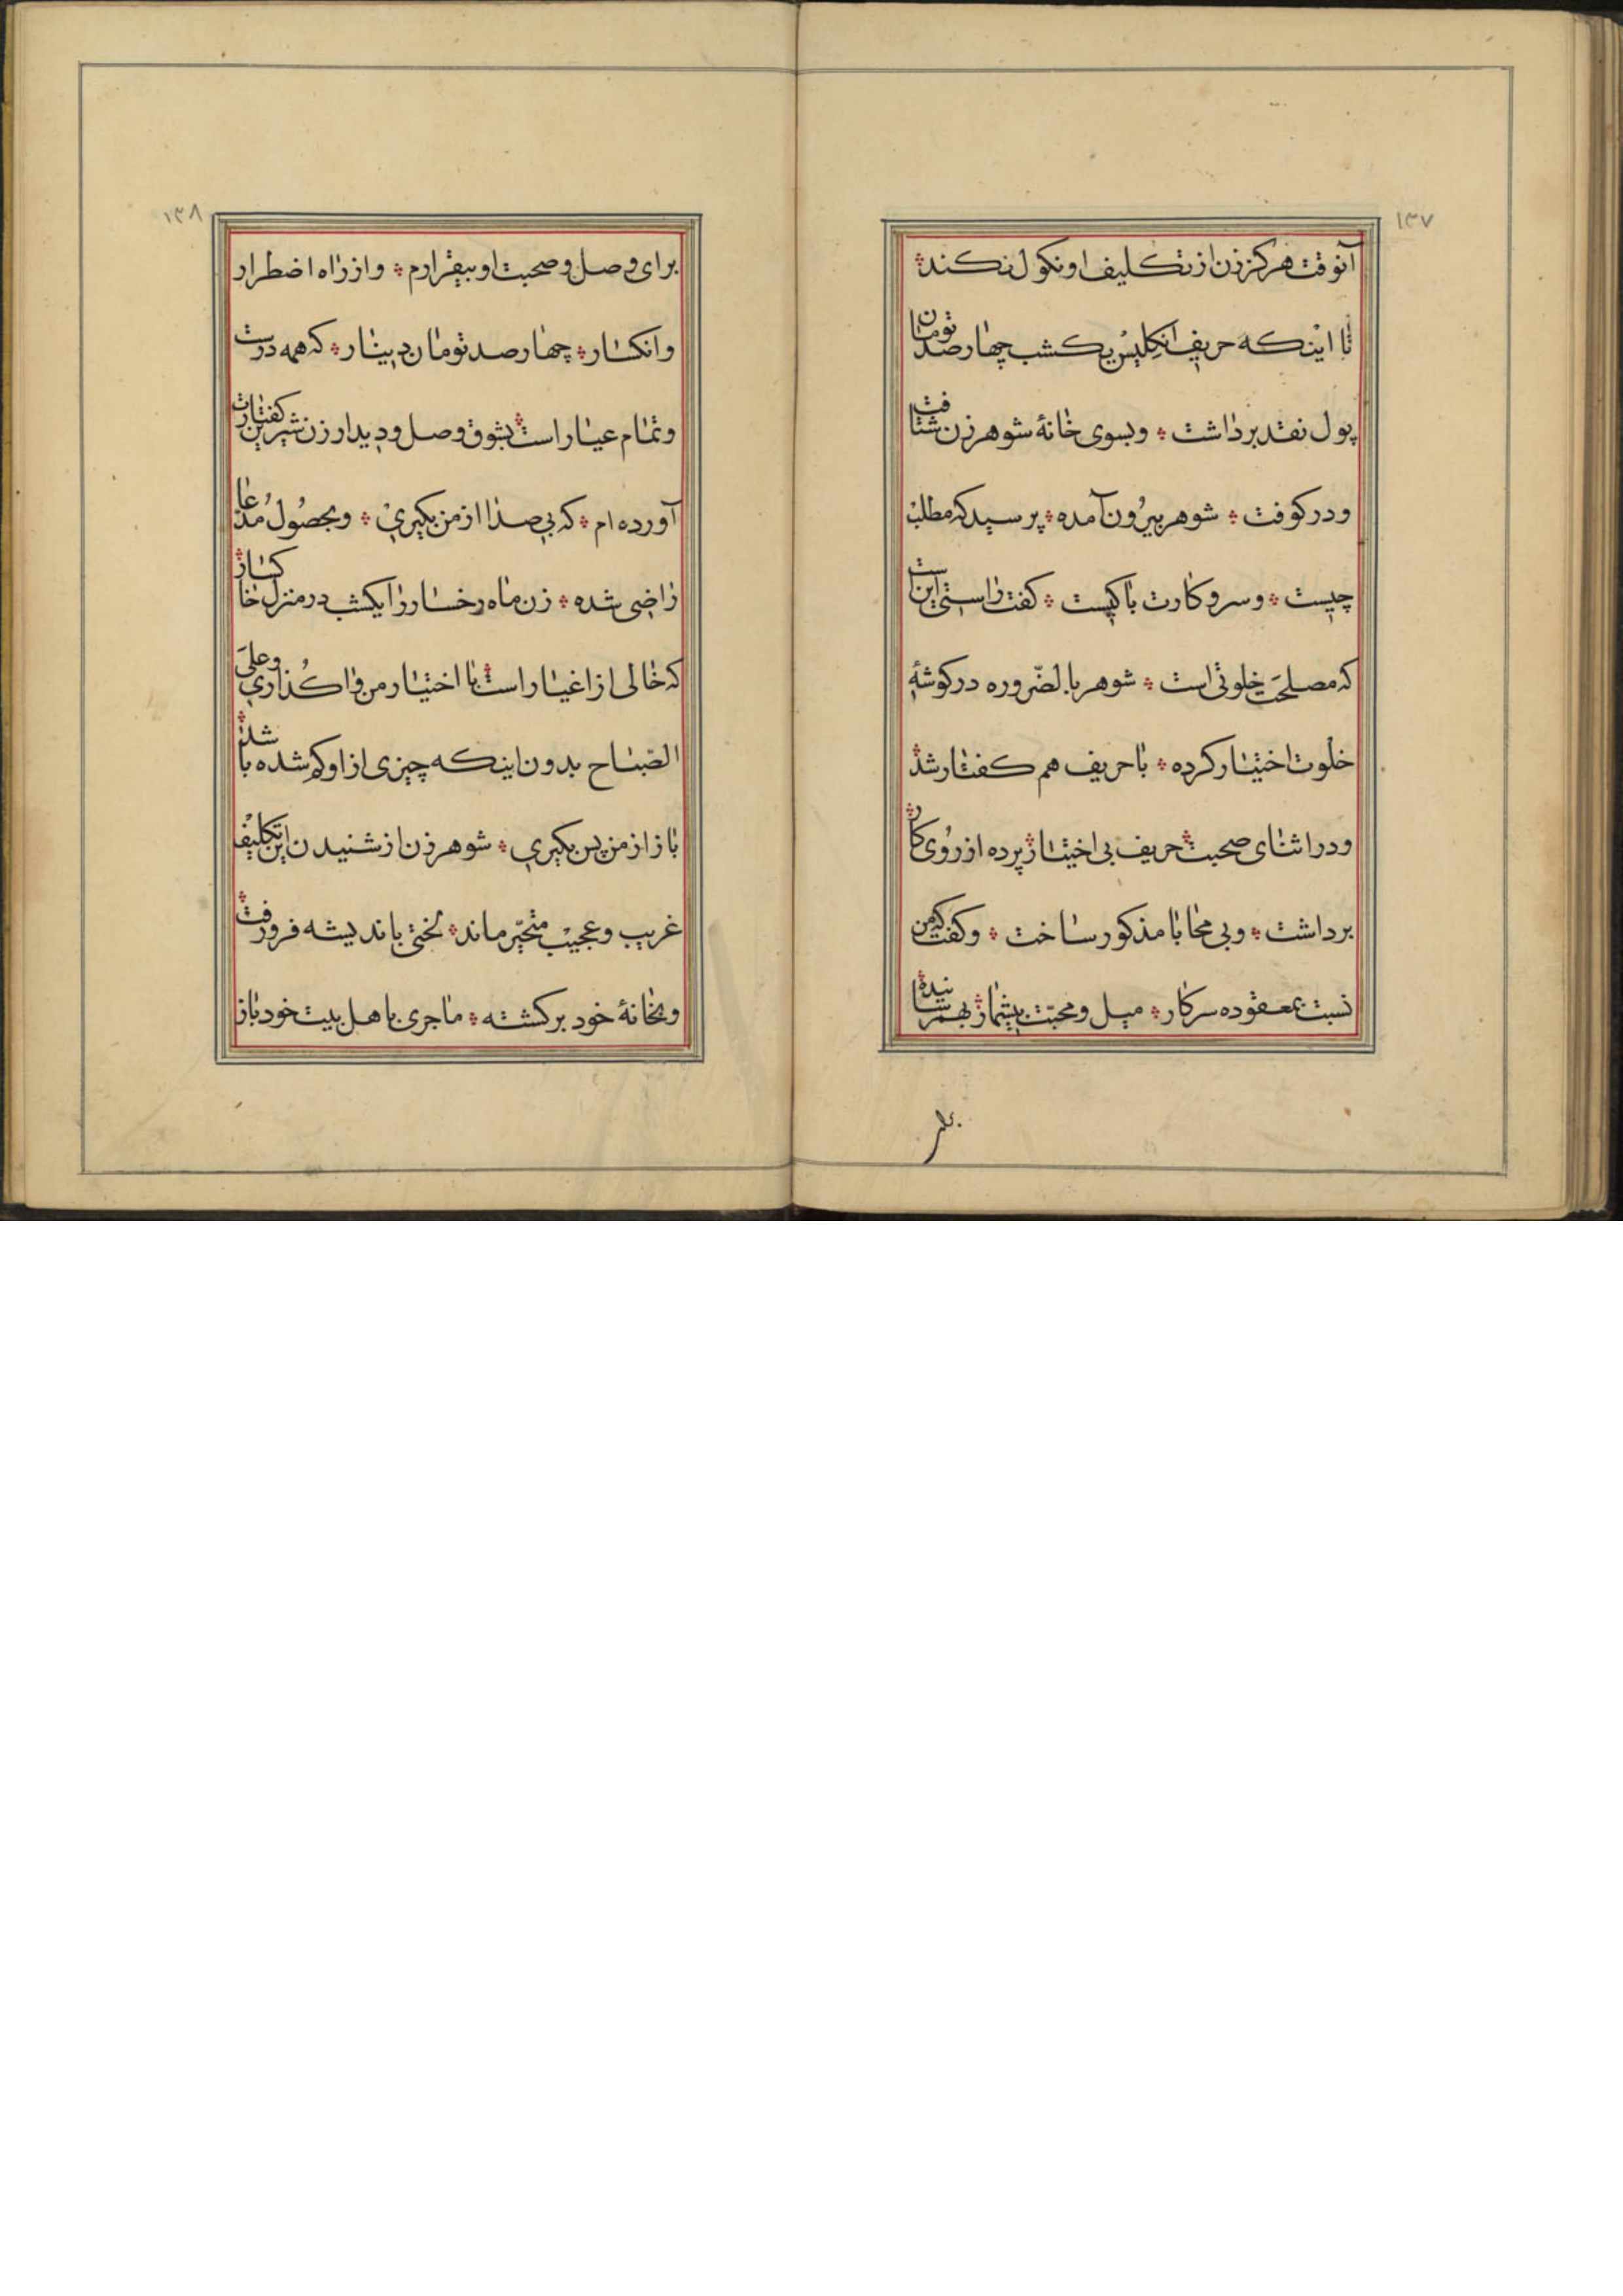 ۱۳۷
آنوقت هرکز زن از تکلیف او نکول نکند
تا اینکه حریف انکلیس یکشب چهار صد تومان
پول نقد برداشت و بسوی خانهٔ شوهر زن شتافت
و در کوفت شوهر بیرُون آمده پرسید که مطلب
چیست و سر و کارت با کیست کفت راستی این است
که مصلحَت خلوتی است شوهر بالضّروره در کوشهٔ
خلوت اختیار کرده با حریف هم کفتار شد
و در اثنای صحبت حریف بی اختیار پرده از رُوی کار
برداشت و بی محابا مذکور ساخت و کفت که من
نسبت بمعقوده سرکار میل و محبّت بیشمار بهمرسانیده
برای
۱۳۸
برای وصل و صحبت او بیقرارم و از راه اضطرار
و انکسار چهار صد تومان دینار که همه درست
و تمام عیار است بشوق وصل و دیدار زن شیرین کفتارت
آورده ام که بی صدا از من بکیری و بحصُول مُدعا
راضی شده زن ماه رخسار را یکشب در منزل خاکسار
که خالی از اغیار است با اختیار من واکُذاری و علَی
الصّباح بدون اینکه چیزی از او کم شده باشد
باز از من پس بکیری شوهر زن از شنیدن این تکلیف
غریب و عجیب متحیّر ماند لختی باندیشه فرو رفت
و بخانهٔ خود برکشته ماجری با هل بیت خود باز